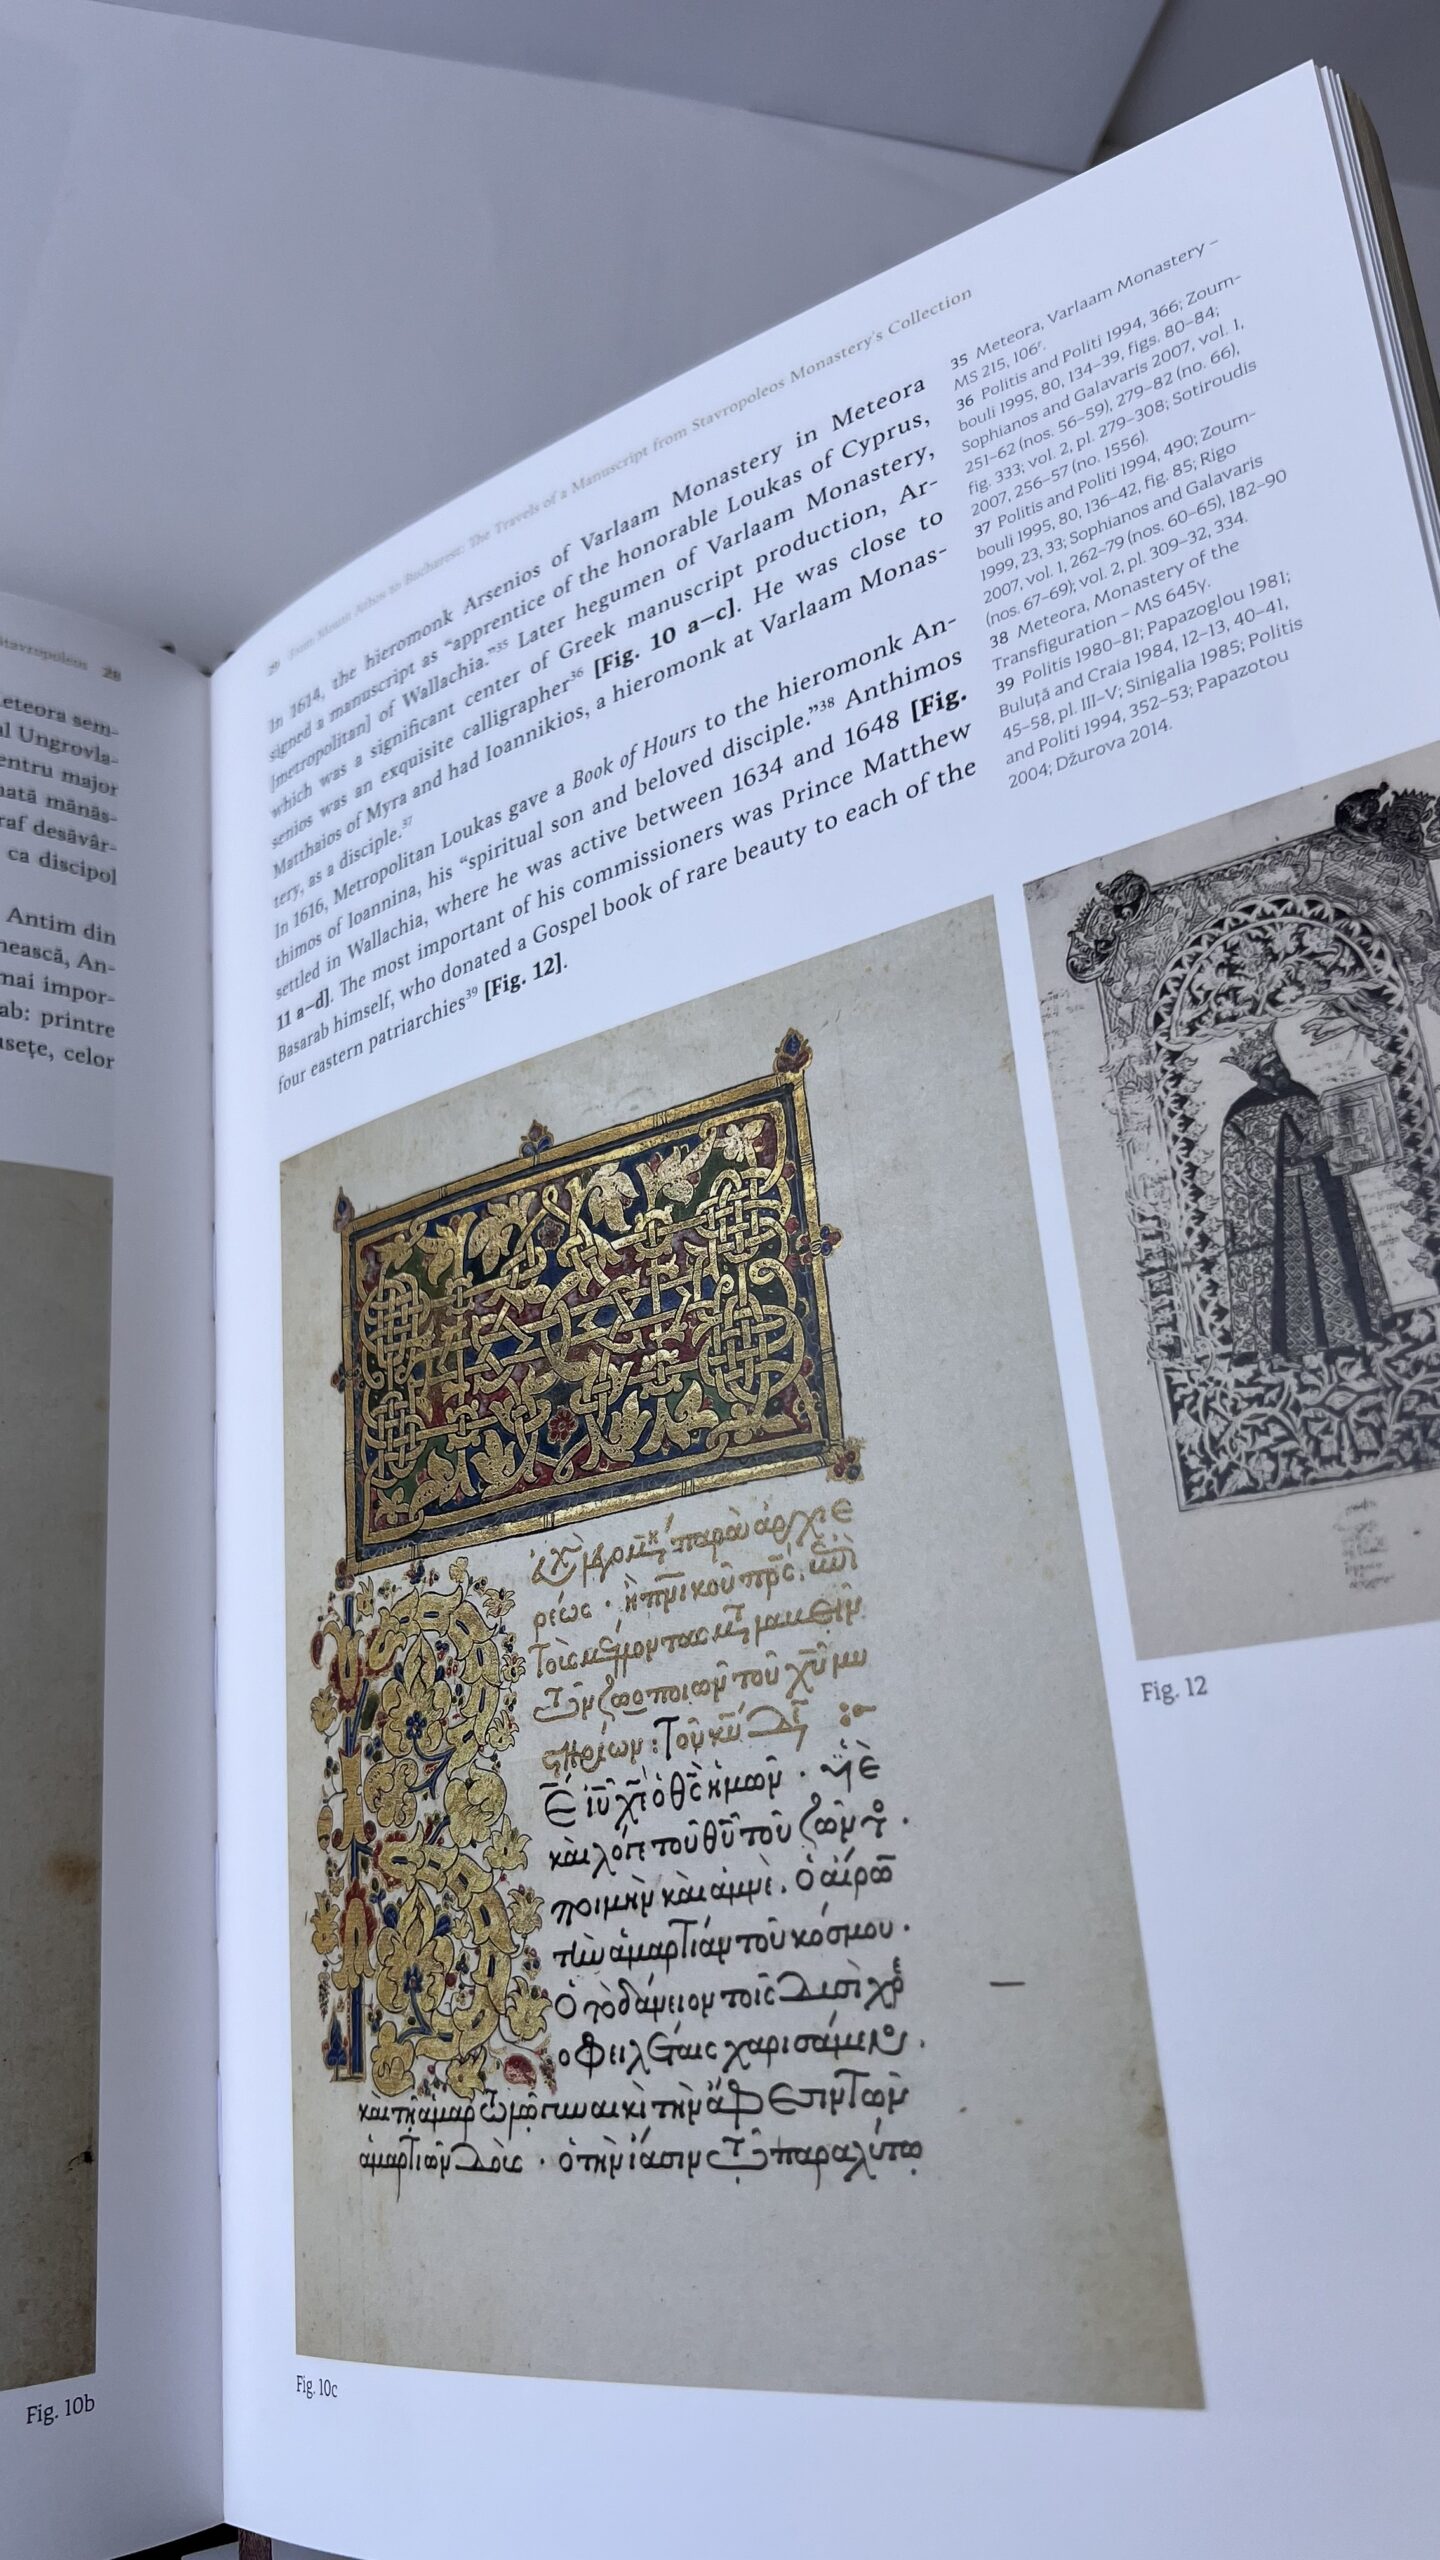 Stavropoleos 28
Meteora sem-
al Ungrovla-
entru major
nată mănăs-
raf desăvâr-
ca discipol
Antim din
nească, An-
mai impor-
ab: printre
usețe, celor
Fig. 10b
From Mount Athos to Bucharest: The Travels of a Manuscript from Stavropoleos Monastery's Collection
In 1614, the hieromonk Arsenios of Varlaam Monastery in Meteora
signed a manuscript as “apprentice of the honorable Loukas of Cyprus,
[metropolitan] of Wallachia.”35 Later hegumen of Varlaam Monastery,
which was a significant center of Greek manuscript production, Ar-
senios was an exquisite calligrapher36 [Fig. 10 a–c]. He was close to
Matthaios of Myra and had Ioannikios, a hieromonk at Varlaam Monas-
tery, as a disciple.37
In 1616, Metropolitan Loukas gave a Book of Hours to the hieromonk An-
thimos of Ioannina, his “spiritual son and beloved disciple.”38 Anthimos
settled in Wallachia, where he was active between 1634 and 1648 [Fig.
11 a–d]. The most important of his commissioners was Prince Matthew
Basarab himself, who donated a Gospel book of rare beauty to each of the
four eastern patriarchies39 [Fig. 12].
35 Meteora, Varlaam Monastery –
MS 215, 106r.
36 Politis and Politi 1994, 366; Zourn-
bouli 1995, 80, 134–39, figs. 80–84;
Sophianos and Galavaris 2007, vol. 1,
251–62 (nos. 56–59), 279–82 (no. 66),
fig. 333; vol. 2, pl. 279–308; Sotiroudis
2007, 256–57 (no. 1556).
37 Politis and Politi 1994, 490; Zourn-
bouli 1995, 80, 136–42, fig. 85; Rigo
1999, 23, 33; Sophianos and Galavaris
2007, vol. 1, 262–79 (nos. 60–65), 182–90
(nos. 67–69); vol. 2, pl. 309–32, 334.
38 Meteora, Monastery of the
Transfiguration – MS 645γ.
39 Politis 1980–81; Papazoglou 1981;
Buluță and Craia 1984, 12–13, 40–41,
45–58, pl. III–V; Sinigalia 1985; Politis
and Politi 1994, 352–53; Papazotou
2004; Džurova 2014.
τοῦ ζῶντ
ποιμὴν καὶ ἀμνὲ. ὁ αἴρω
τὴν ἁμαρτίαν τοῦ κόσμου.
Ὁ τὸ δάνειον τοῖς
χαρισάμεν
παραλύτω
Fig. 10c
Fig. 12